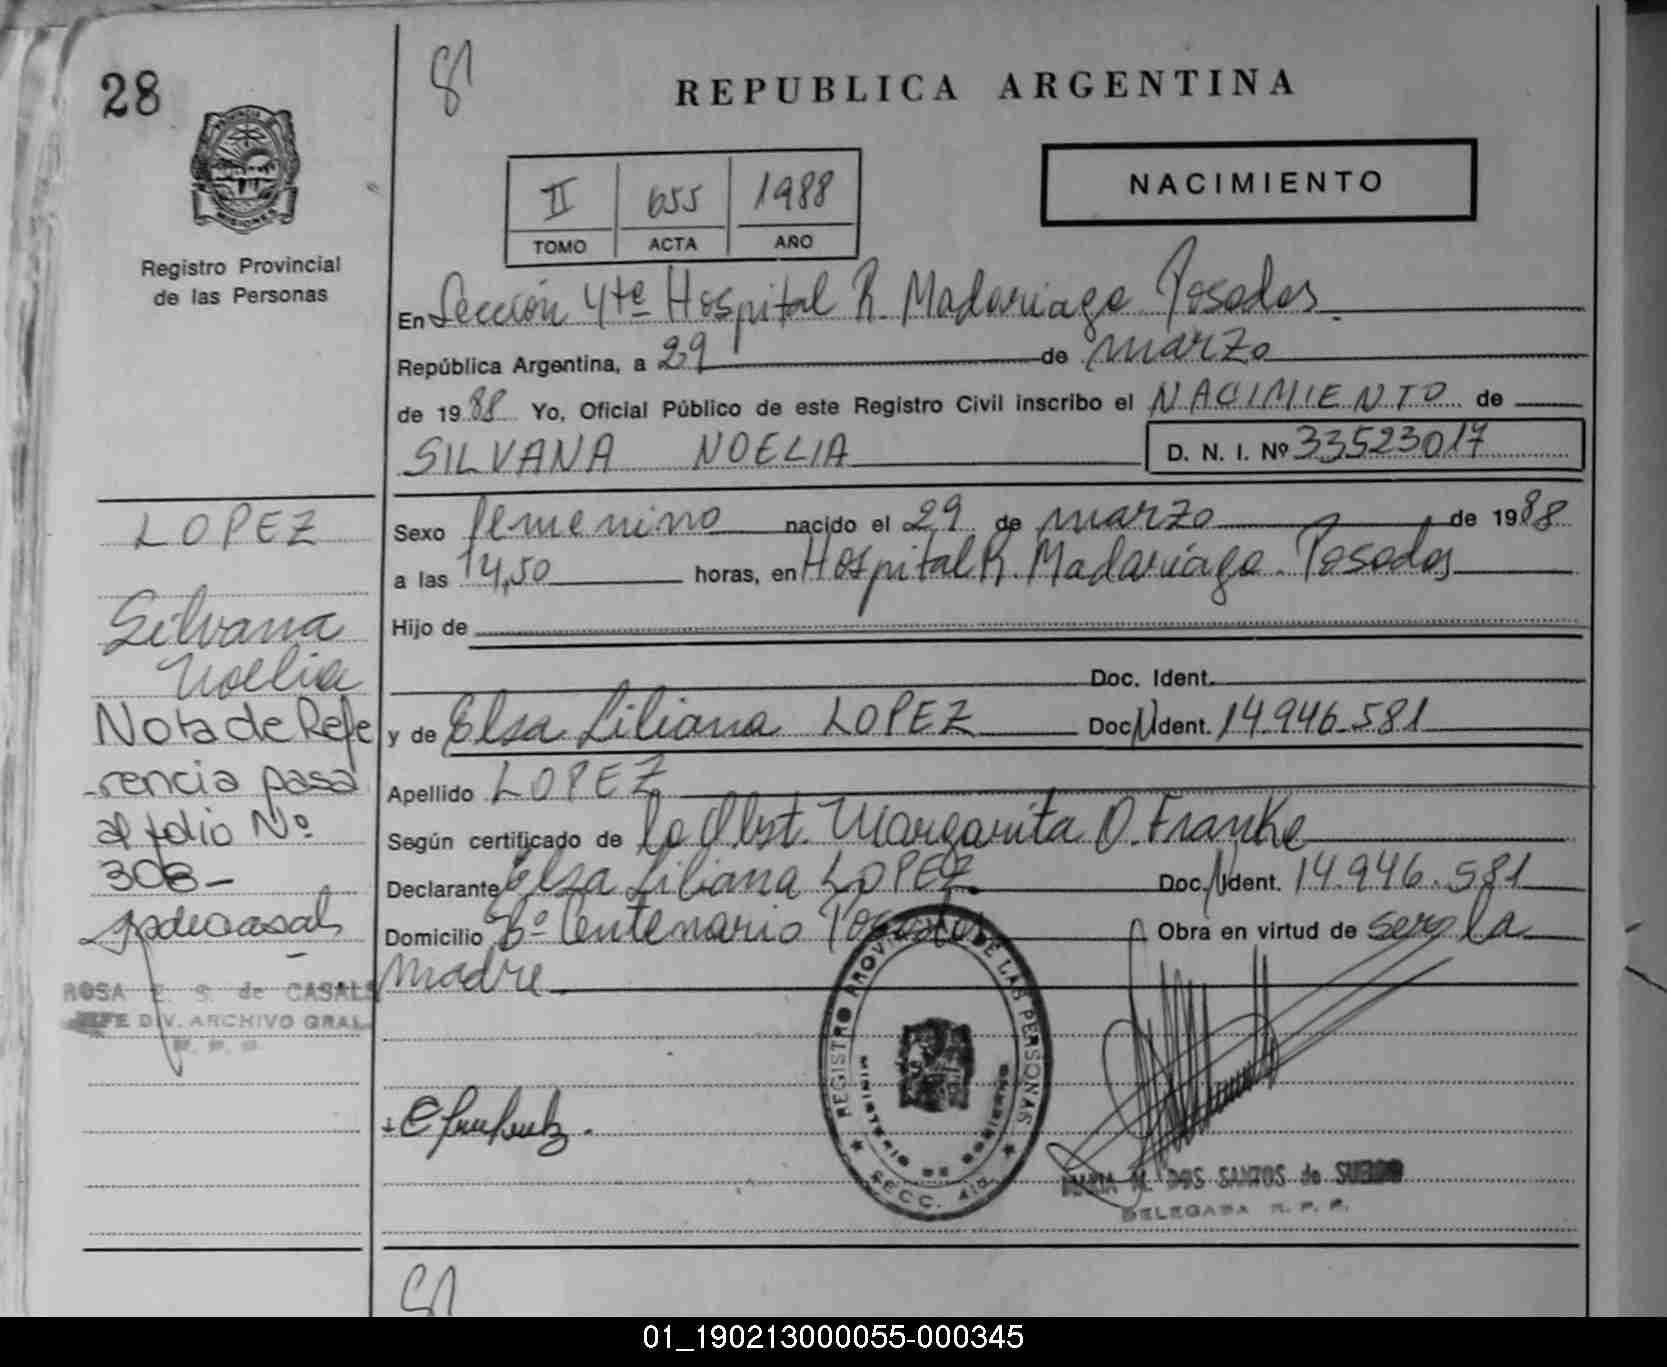 28
REPUBLICA ARGENTINA
II 655 1988
TOMO ACTA AÑO
NACIMIENTO
PROVINCIA DE
MISIONES
Registro Provincial
de las Personas
En Sección 4ta Hospital R. Madariaga Posadas.
República Argentina, a 29 de marzo
de 1988 Yo, Oficial Público de este Registro Civil inscribo el NACIMIENTO de
SILVANA NOELIA D. N. I. Nº 33523017
LOPEZ
Silvana
Noelia
Nota de Refe
rencia pasa
al folio Nº
308-
ROSA E. S. de CASALS
JEFE DIV. ARCHIVO GRAL.
Sexo femenino nacido el 29 de marzo de 1988
a las 14,50 horas, en Hospital R. Madariaga. Posadas
Hijo de
Doc. Ident.
y de Elsa Liliana LOPEZ Doc. N Ident. 14.946.581
Apellido LOPEZ
Según certificado de la Obst. Margarita O. Franke
Declarante Elsa Liliana LOPEZ. Doc. N Ident. 14.946.581
Domicilio Bº Centenario Posadas Obra en virtud de ser la
madre.
REGISTRO PROVINCIAL DE LAS PERSONAS
MINISTERIO DE GOBIERNO
SECC. 4ta.
MARIA M. DOS SANTOS de SUELDO
DELEGADA R. P. P.
01_190213000055-000345